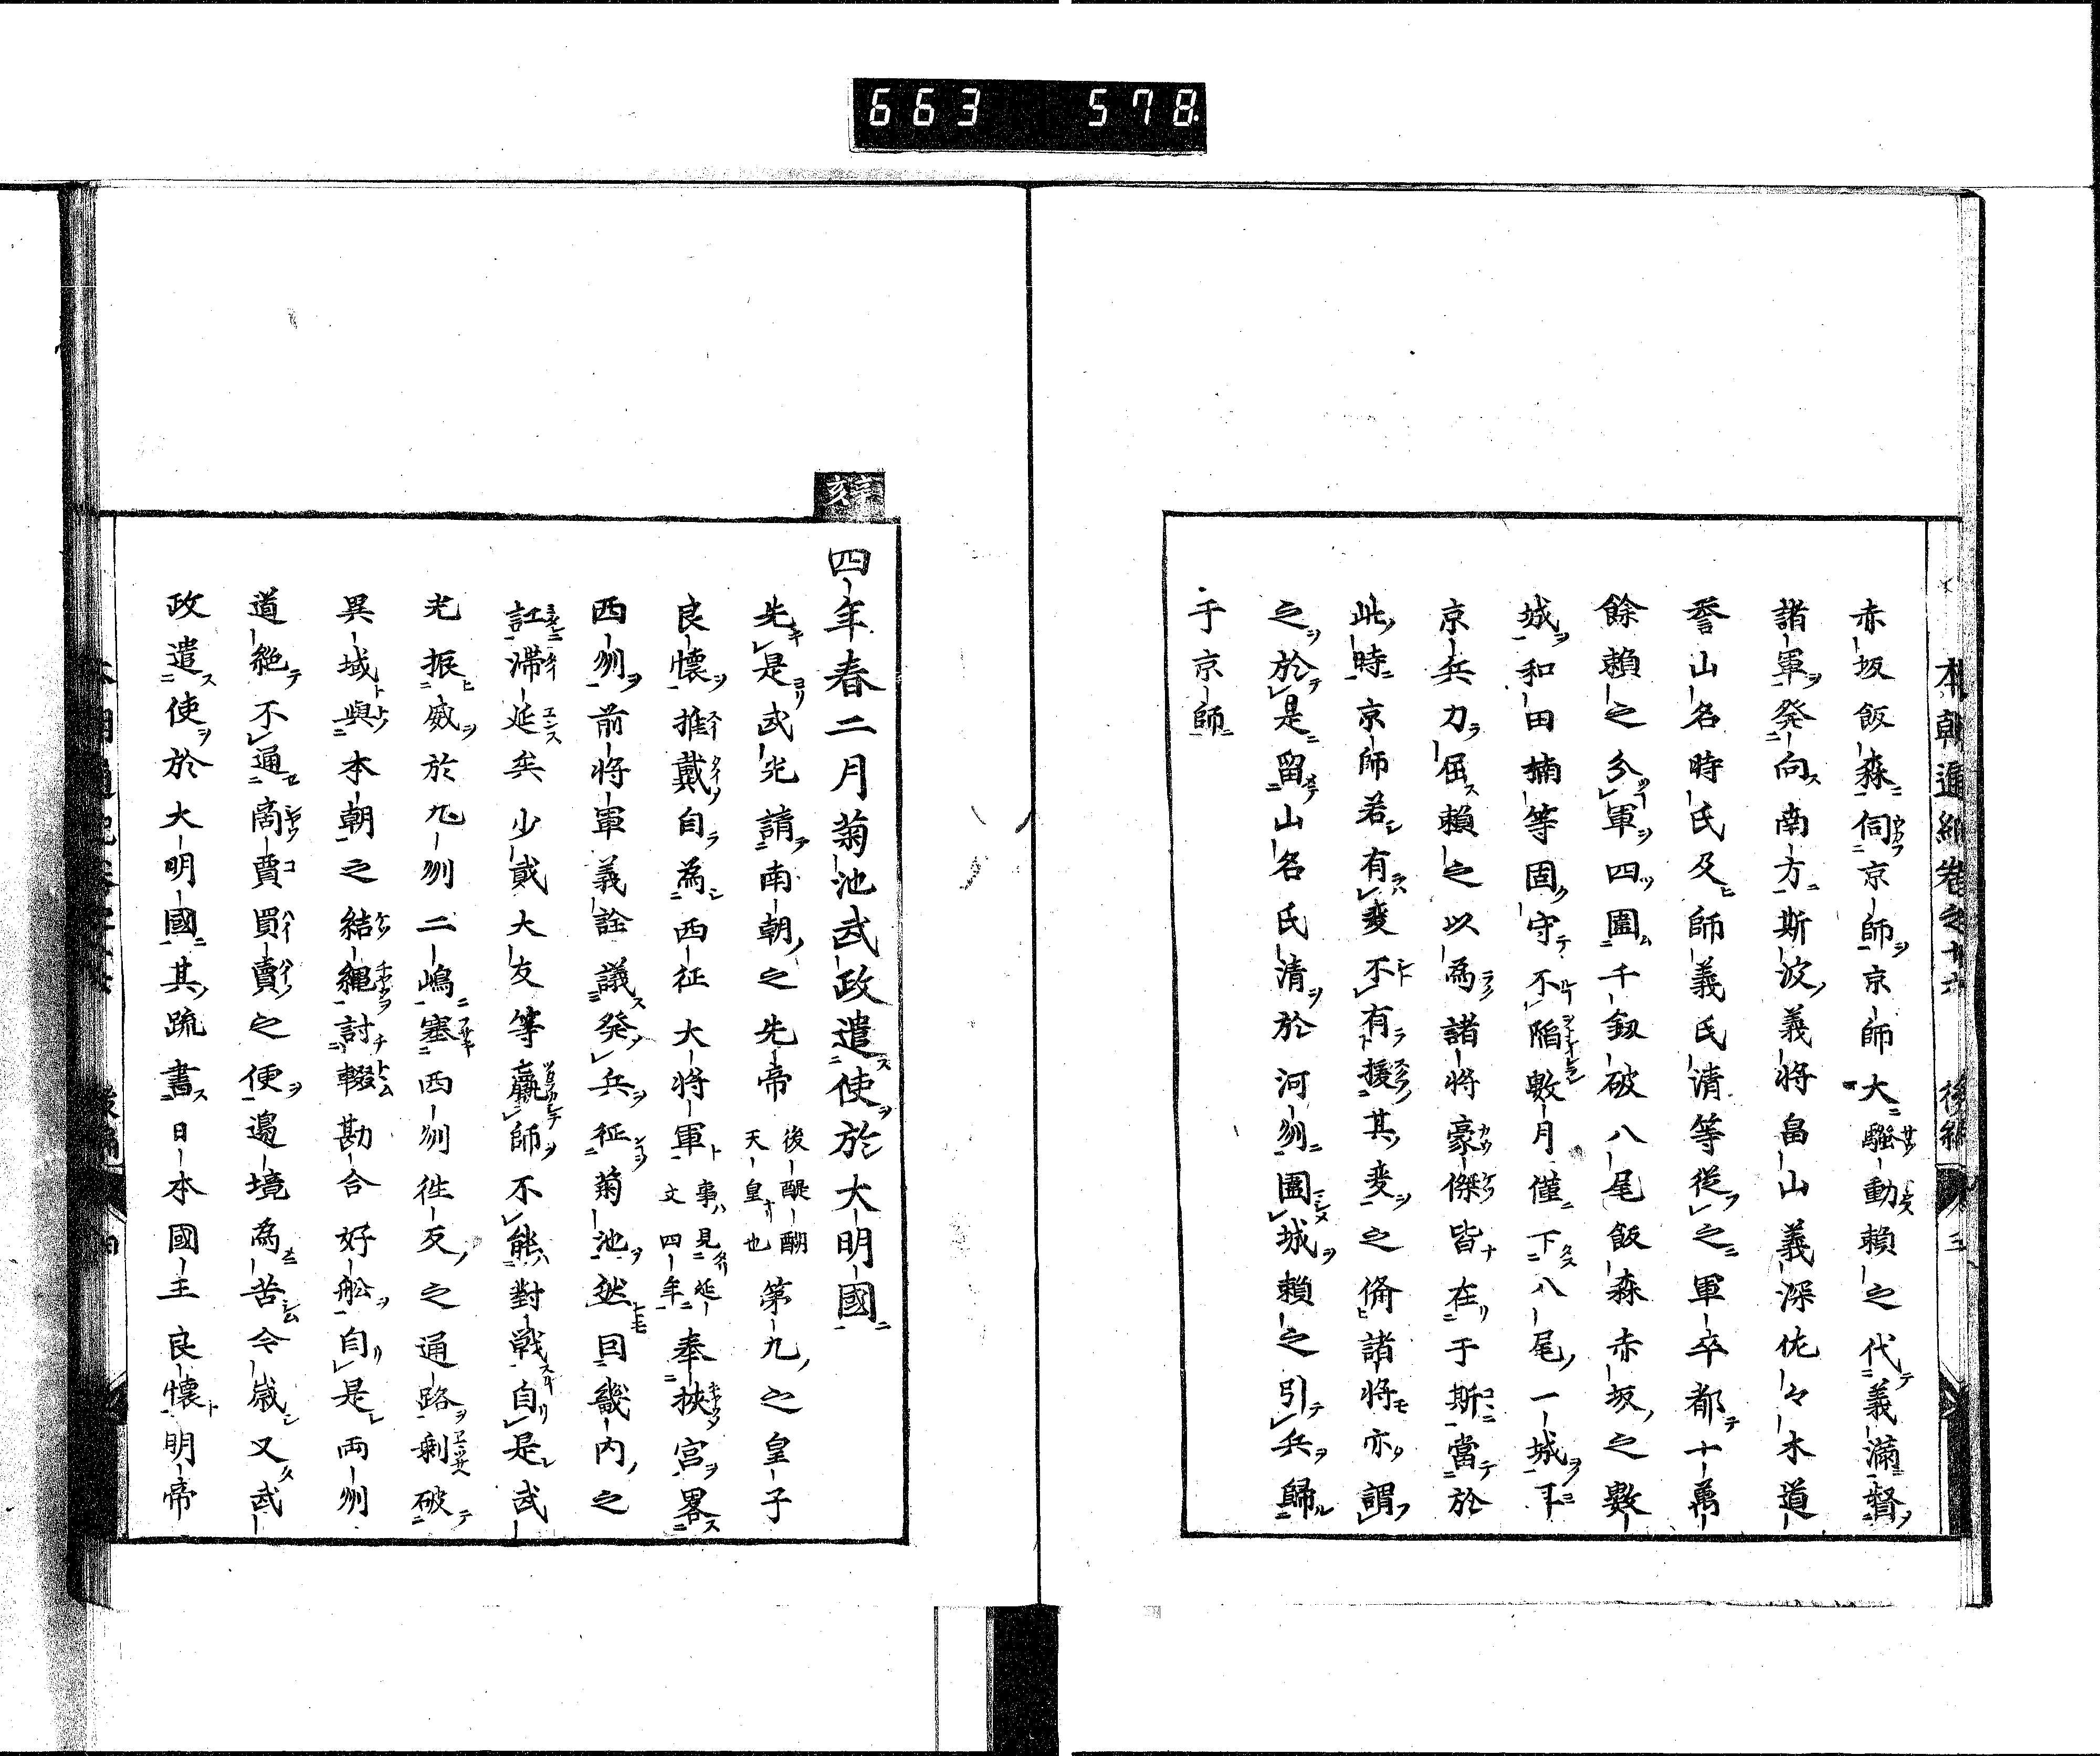 663 578
本朝通紀卷之十六 後編 三
赤坂飯森伺京師京師大騷動賴之代義滿督
諸軍発向南方斯波義将畠山義深佐々木道
誉山名時氏及師義氏清等從之軍卒都十萬
餘賴之分軍四圍千釼破八尾飯森赤坂之數
城和田楠等固守不陷數月僅下八尾一城耳
京兵力屈賴之以為諸将豪傑皆在于斯當於
此時京師若有変不有援其変之偹諸将亦謂
之於是留山名氏清於河刕圍城賴之引兵歸
于京師
辛亥
四年春二月菊池武政遣使於大明國
先是武光請南朝之先帝 後醍醐
天皇也 第九之皇子
良懷推戴自為西征大将軍 事見延
文四年 奉挾宮畧
西刕前将軍義詮議発兵征菊池然回畿内之
訌滞延矣少貳大友等羸師不能對戰自是武
光振威於九刕二嶋塞西刕徃反之通路剩破
異域與本朝之結縄討輟勘合好舩自是両刕
道絶不通商賈買賣之便邉境為苦今歳又武
政遣使於大明國其疏書日本國王良懷明帝